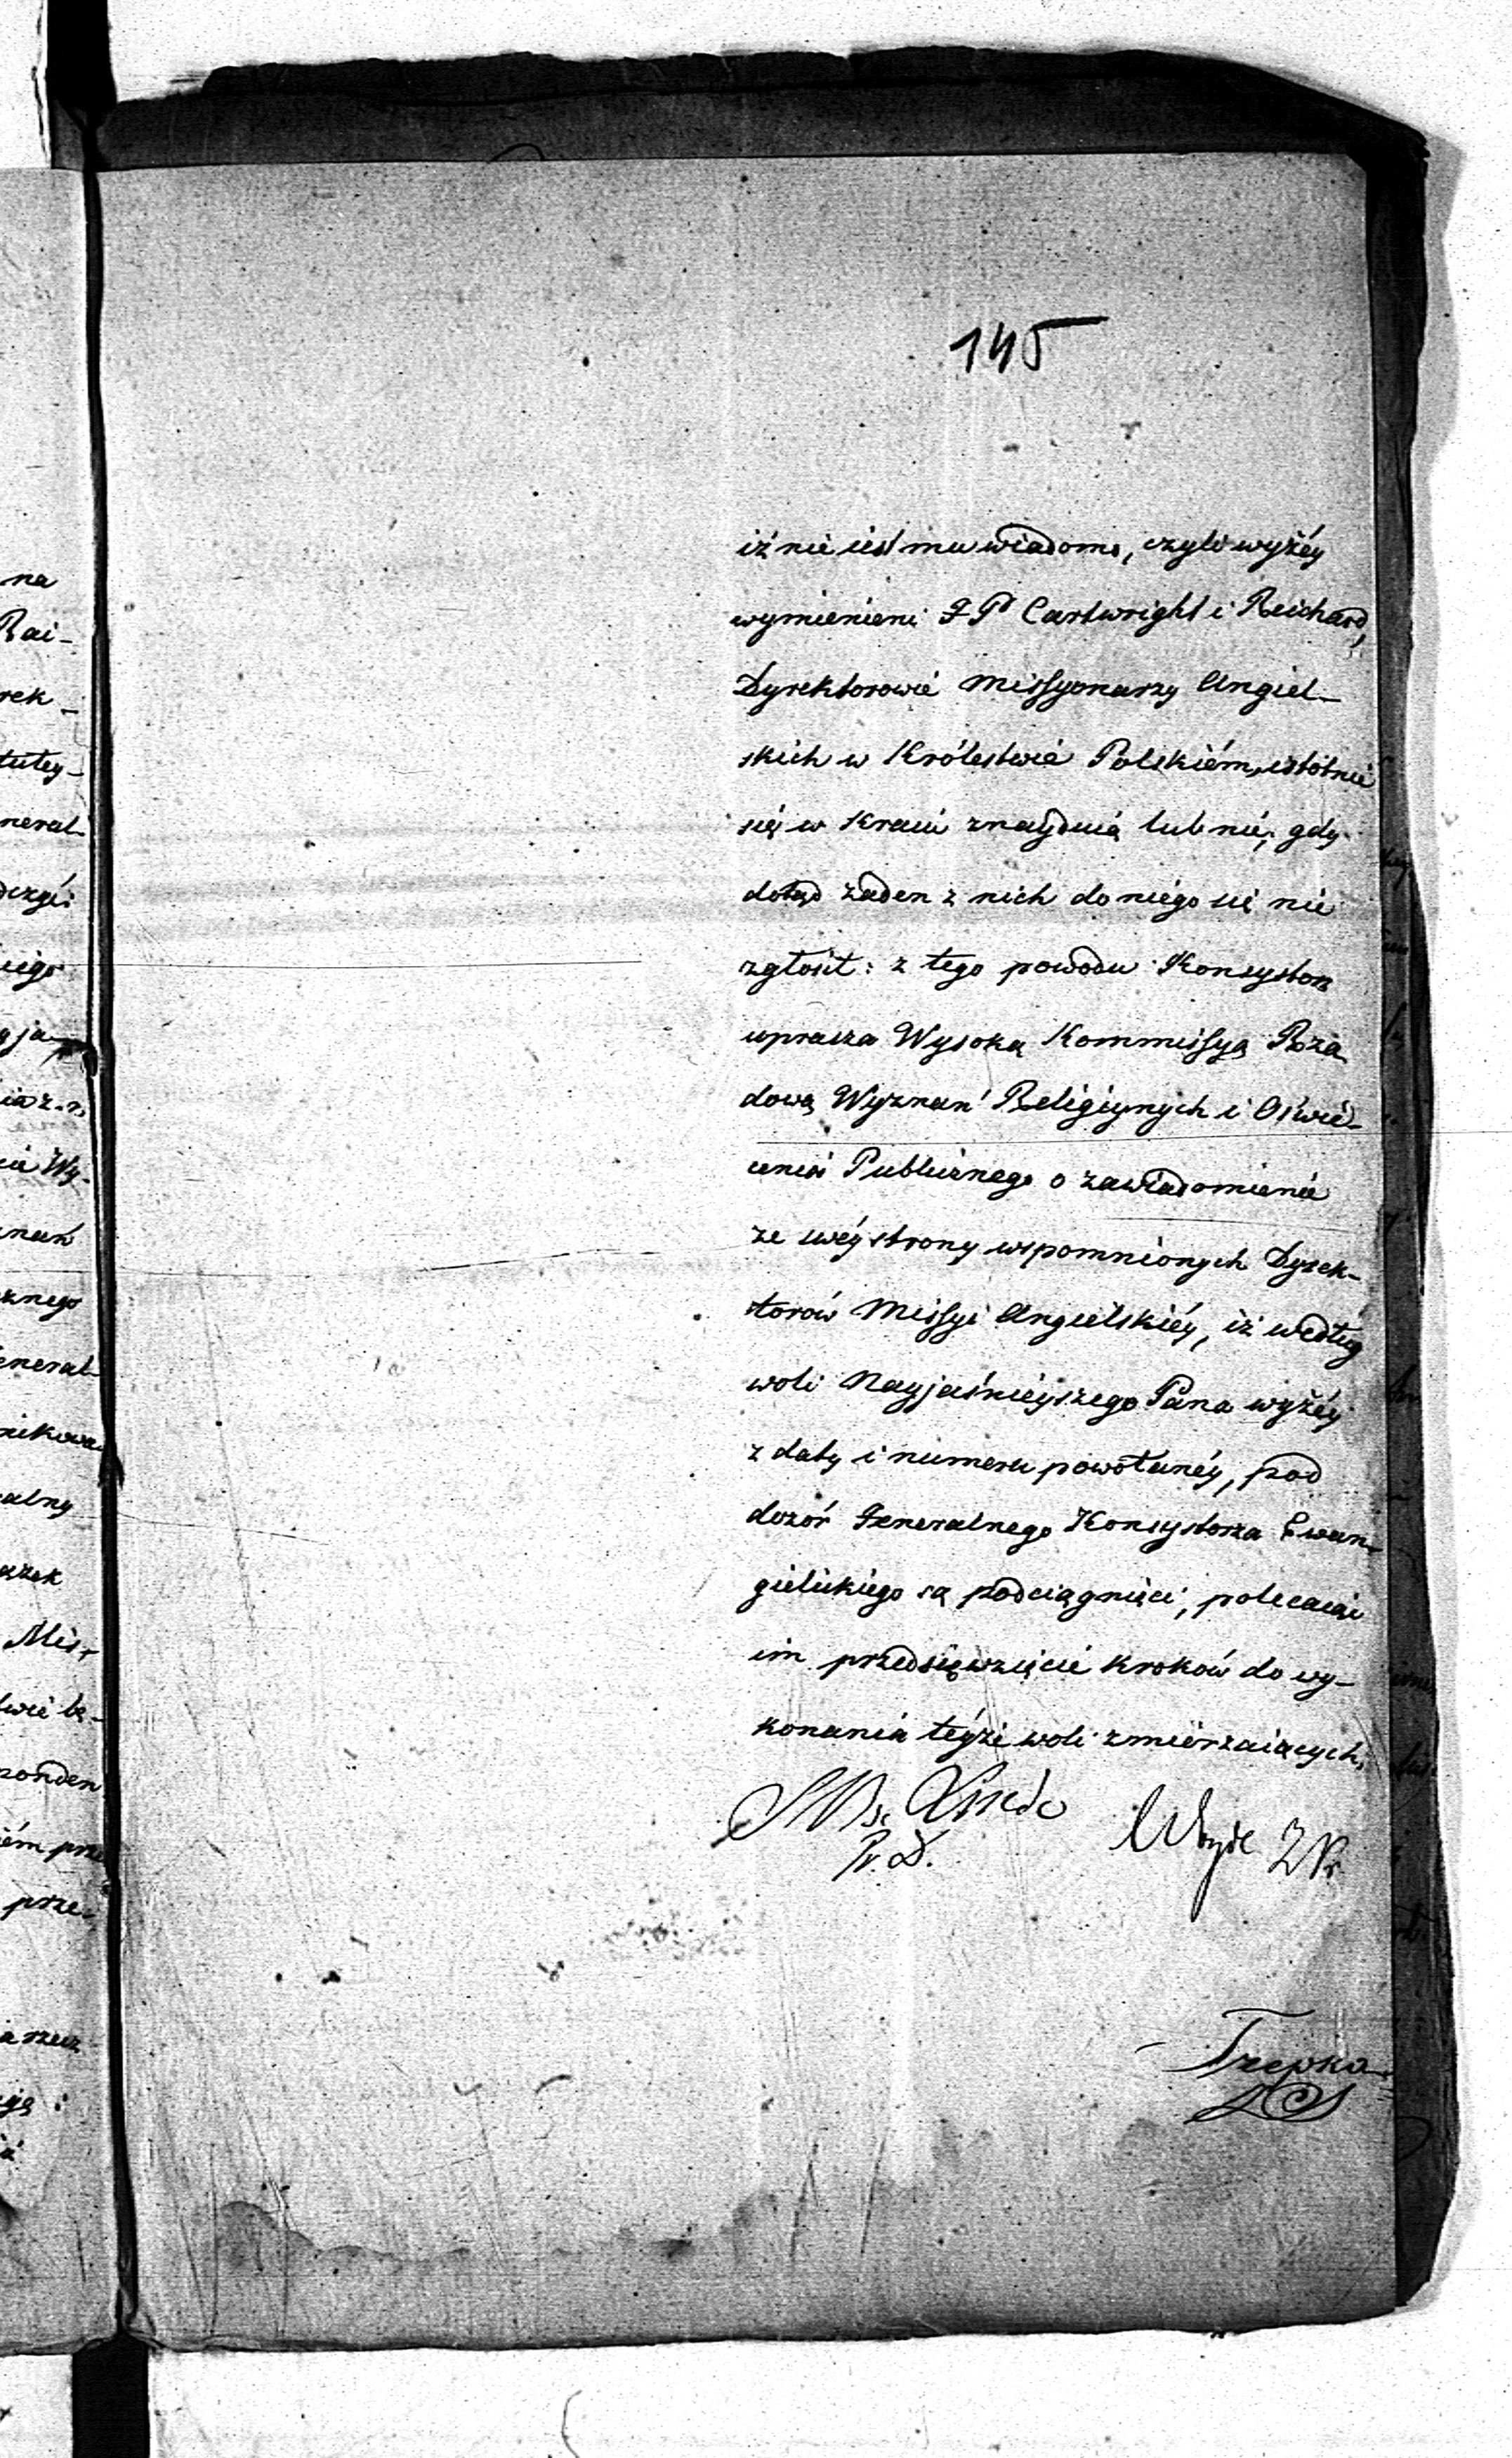 145
iż nie iest mu wiadomo, czyli wyżéy
wymienieni JP Cartwright i Reichard,
Dyrektorowie Missyonarzy Angiel-
skich w Królestwie Polskiém, istotnie
się w Kraiu znayduią lub nie; gdy
dotąd żaden z nich do niego się nie
zgłosił: z tego powodu Konsystorz
uprasza Wysoką Kommissyą Rzą-
dową Wyznań Religiynych i Oświé-
cenia Publicznego o zawiadomienie
ze swéy strony wspomnionych Dyrek-
torów Missyi Angielskiéy, iż według
woli Nayjaśnieyszego Pana wyżéy
z daty i numeru powołanéy, pod
dozór Generalnego Konsystorza Ewan-
gielickiego są podciągnięci, polecaiąc
im przedsięwzięcie kroków do wy-
konania téyże woli zmiérzaiących.
Linde
Trepka
na
Rai-
rek-
tutey-
neral-
iego
znego
eneral-
alny
Mis-
prze-